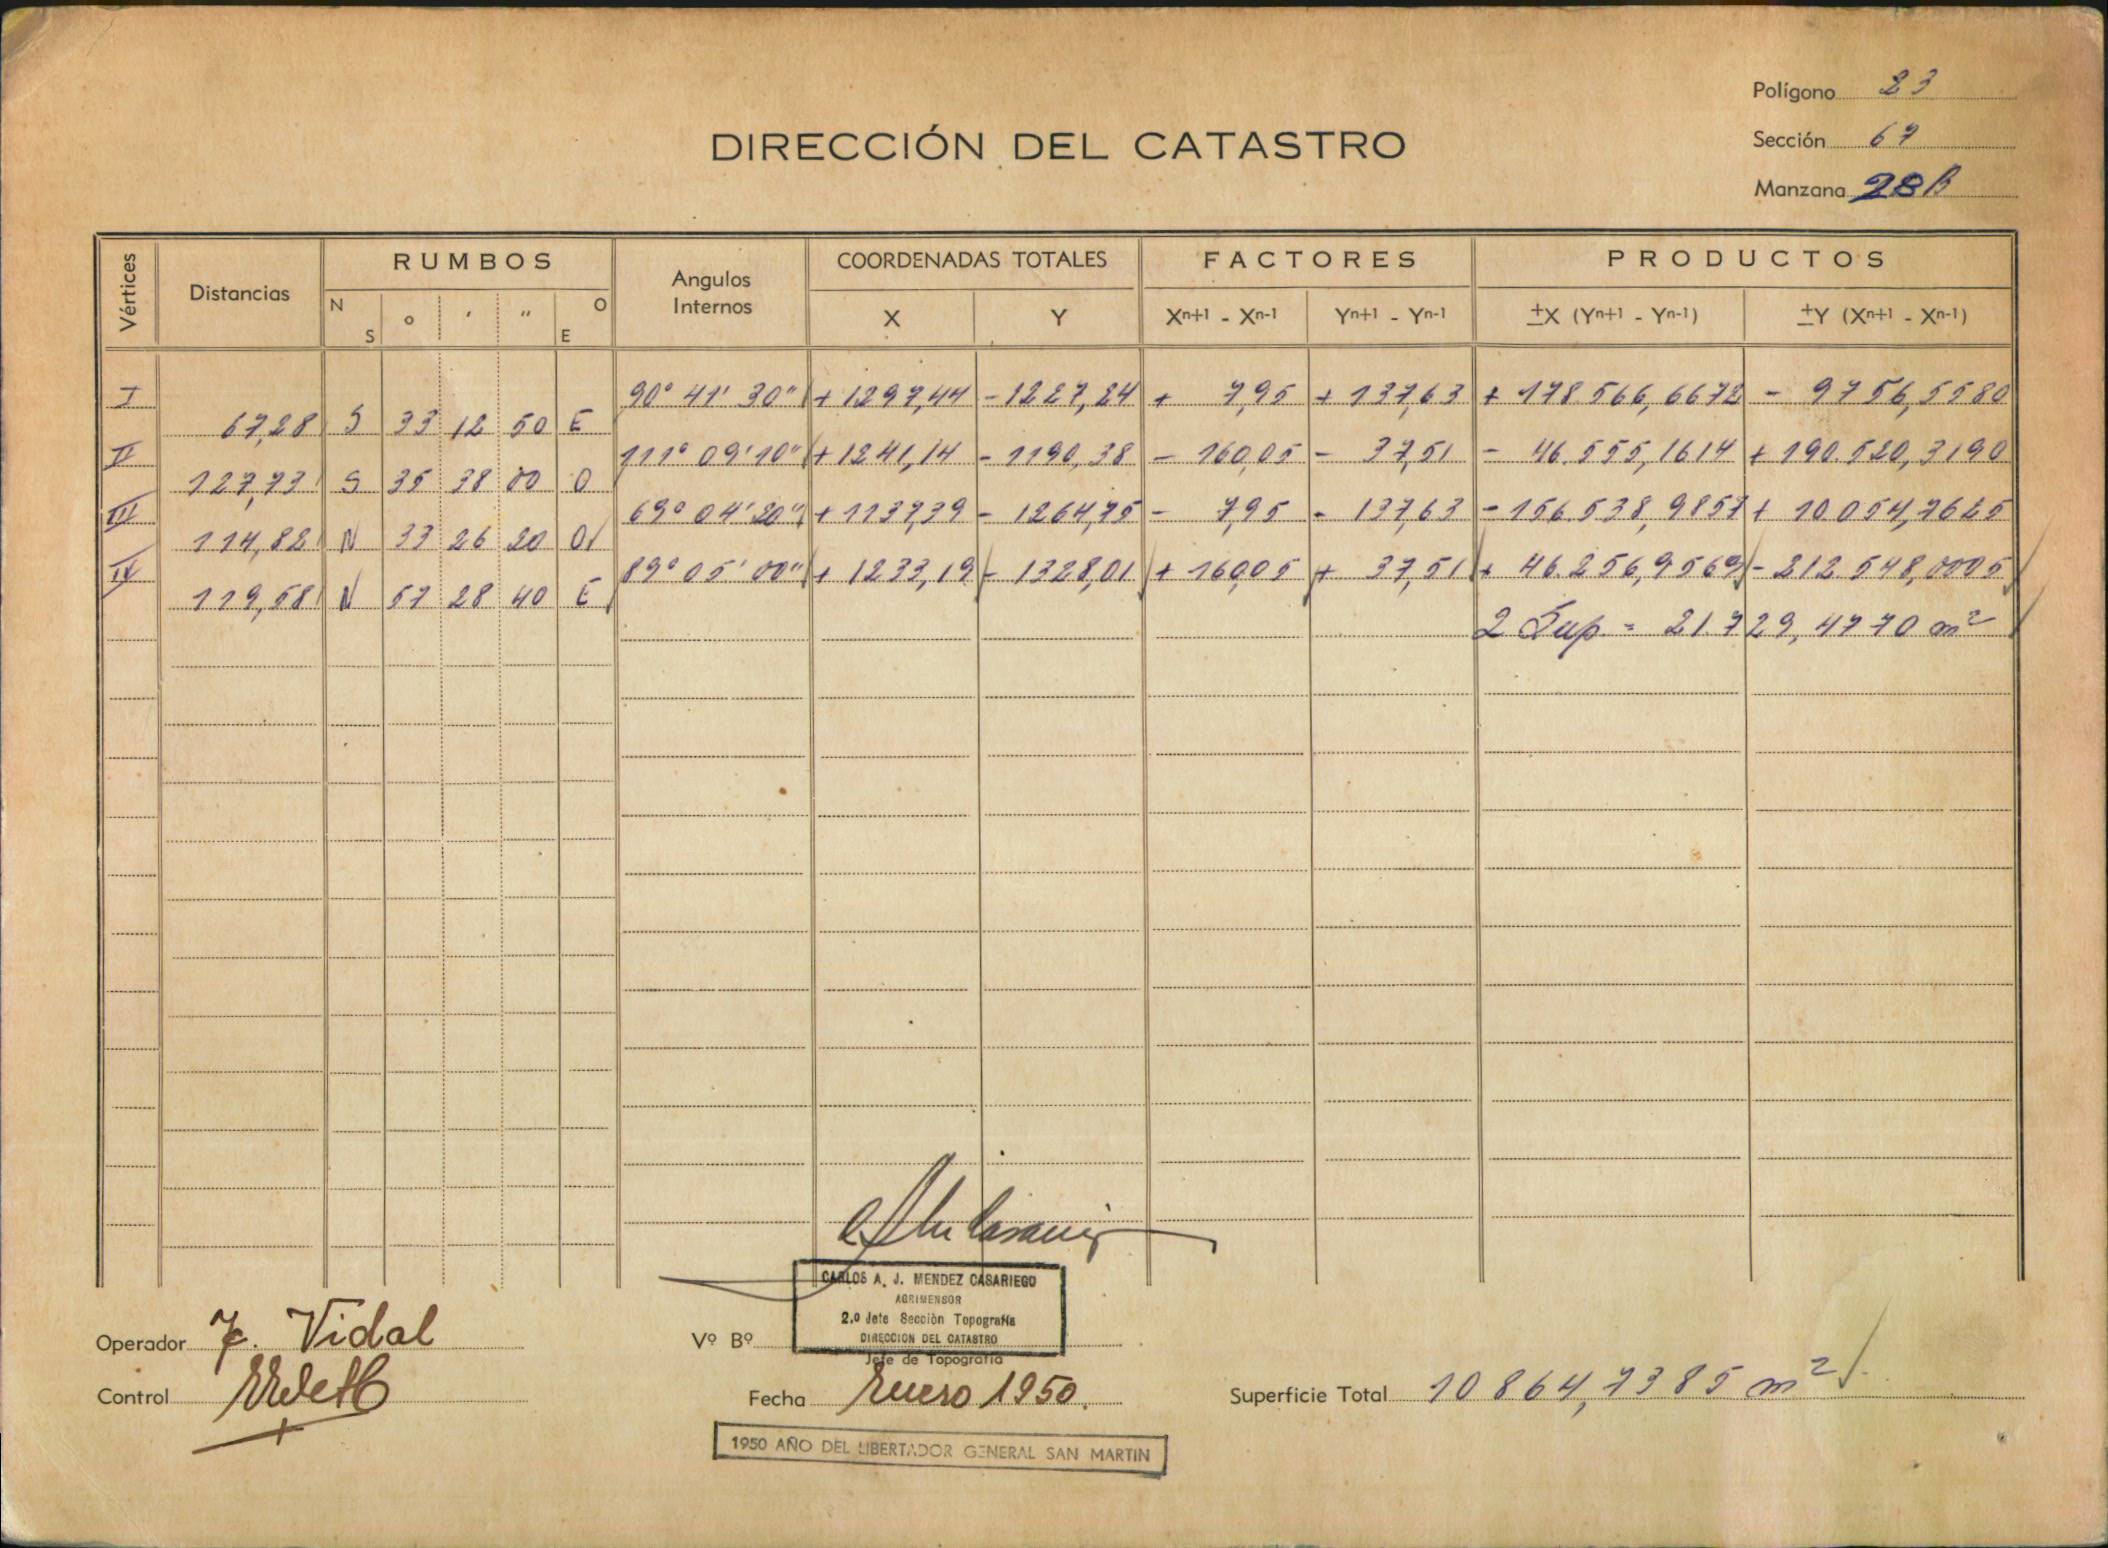 Polígono 23
Sección 67
Manzana 28B
DIRECCIÓN DEL CATASTRO
Vértices Distancias RUMBOS Angulos Internos COORDENADAS TOTALES FACTORES PRODUCTOS
N S ° ′ ″ O E X Y Xn+1 - Xn-1 Yn+1 - Yn-1 ±X (Yn+1 - Yn-1) ±Y (Xn+1 - Xn-1)
I 90° 41' 30" + 1297,44 - 1227,24 + 7,95 + 137,63 + 178 566,6672 - 9756,5580
67,28 S 33 12 50 E
II 111° 09' 10" + 1241,14 - 1190,38 - 160,05 - 37,51 - 46.555,1614 + 190.520,3190
127,73 S 35 38 00 O
III 69° 04' 20" + 1137,39 - 1264,75 - 7,95 - 137,63 - 156.538,9857 + 10.054,7625
114,82 N 33 26 20 O
IV 89° 05' 00" + 1233,19 - 1328,01 + 160,05 + 37,51 + 46.256,9569 - 212.548,0005
119,58 N 57 28 40 E
2 Sup. = 21.729,4770 m²
CARLOS A. J. MENDEZ CASARIEGO
AGRIMENSOR
2.º Jefe Sección Topografía
DIRECCION DEL CATASTRO
Operador F. Vidal
Vº Bº
Jefe de Topografía
Control
Fecha Enero 1950.
Superficie Total 10864,7385 m²
1950 AÑO DEL LIBERTADOR GENERAL SAN MARTIN